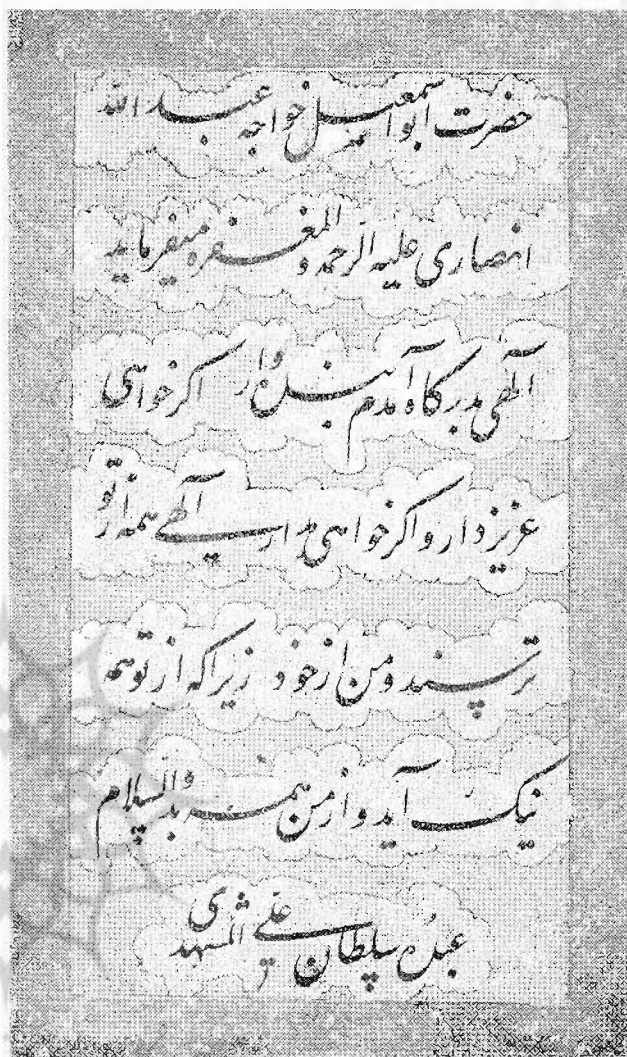 حضرت ابو اسمعیل خواجه عبد الله
انصاری علیه الرحمه و المغفره میفرماید
الهی بدرگاه آمدم بنده وار اکر خواهی
عزیز دار و اکر خواهی خوار الهی همه از تو
ترسند و من از خود زیرا که از تو همه
نیک آید و از من همه بد والسلام
عبده سلطان علی المشهدی